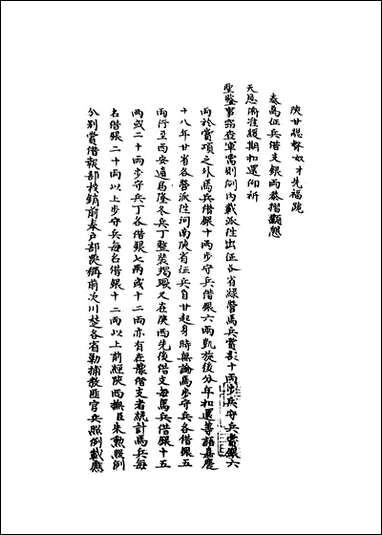 陝甘總督奴才先福跪
奏為征兵借支銀兩恭摺籲懇
天恩淮緩期扣還仰祈
聖鑒事竊查軍需則例內載派往出征各省綠營馬兵賞銀十兩步戰守兵賞銀六
兩於賞項之外馬兵借銀十兩步守兵借銀六兩凱旋後分年扣還等語嘉慶
十八年甘省各營派往河南陝省征兵自甘起身時無論馬步守兵各借銀五
兩行至西安適馬隆冬兵丁整裝竭蹶又在陝西先後借支每馬兵借銀十五
兩或二十兩步守兵丁各借銀七兩或十二兩亦有在豫借支者統計馬兵每
名借銀二十兩以上步守兵每名借銀十二兩以上前經陝西撫臣朱勳照例
分別賞借報部核銷前奉戶部議稱前次川楚各省勦捕教匪官兵照例載應